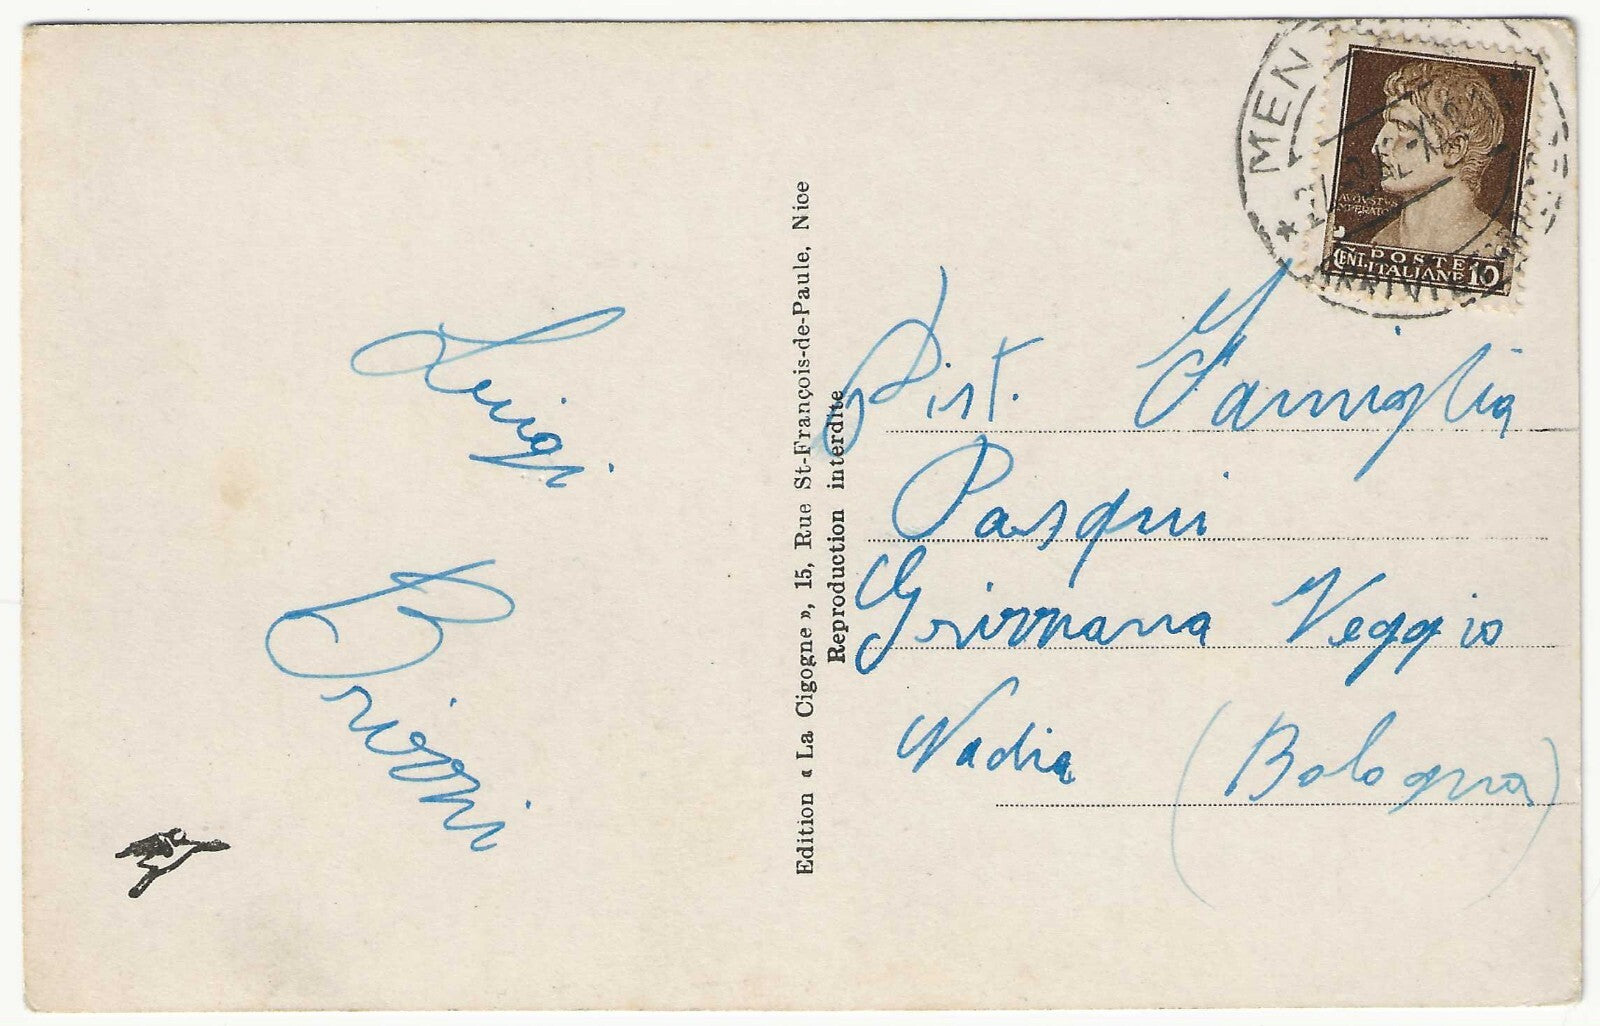 Luigi
Brizzi
Edition « La Cigogne », 15, Rue St-François-de-Paule, Nice
Reproduction interdite
MEN
ARRIVI
AVGVSTVS
IMPERATOR
POSTE
CENT. ITALIANE 10
Dist. Famiglia
Pasqui
Grizzana Veggio
Nadia (Bologna)